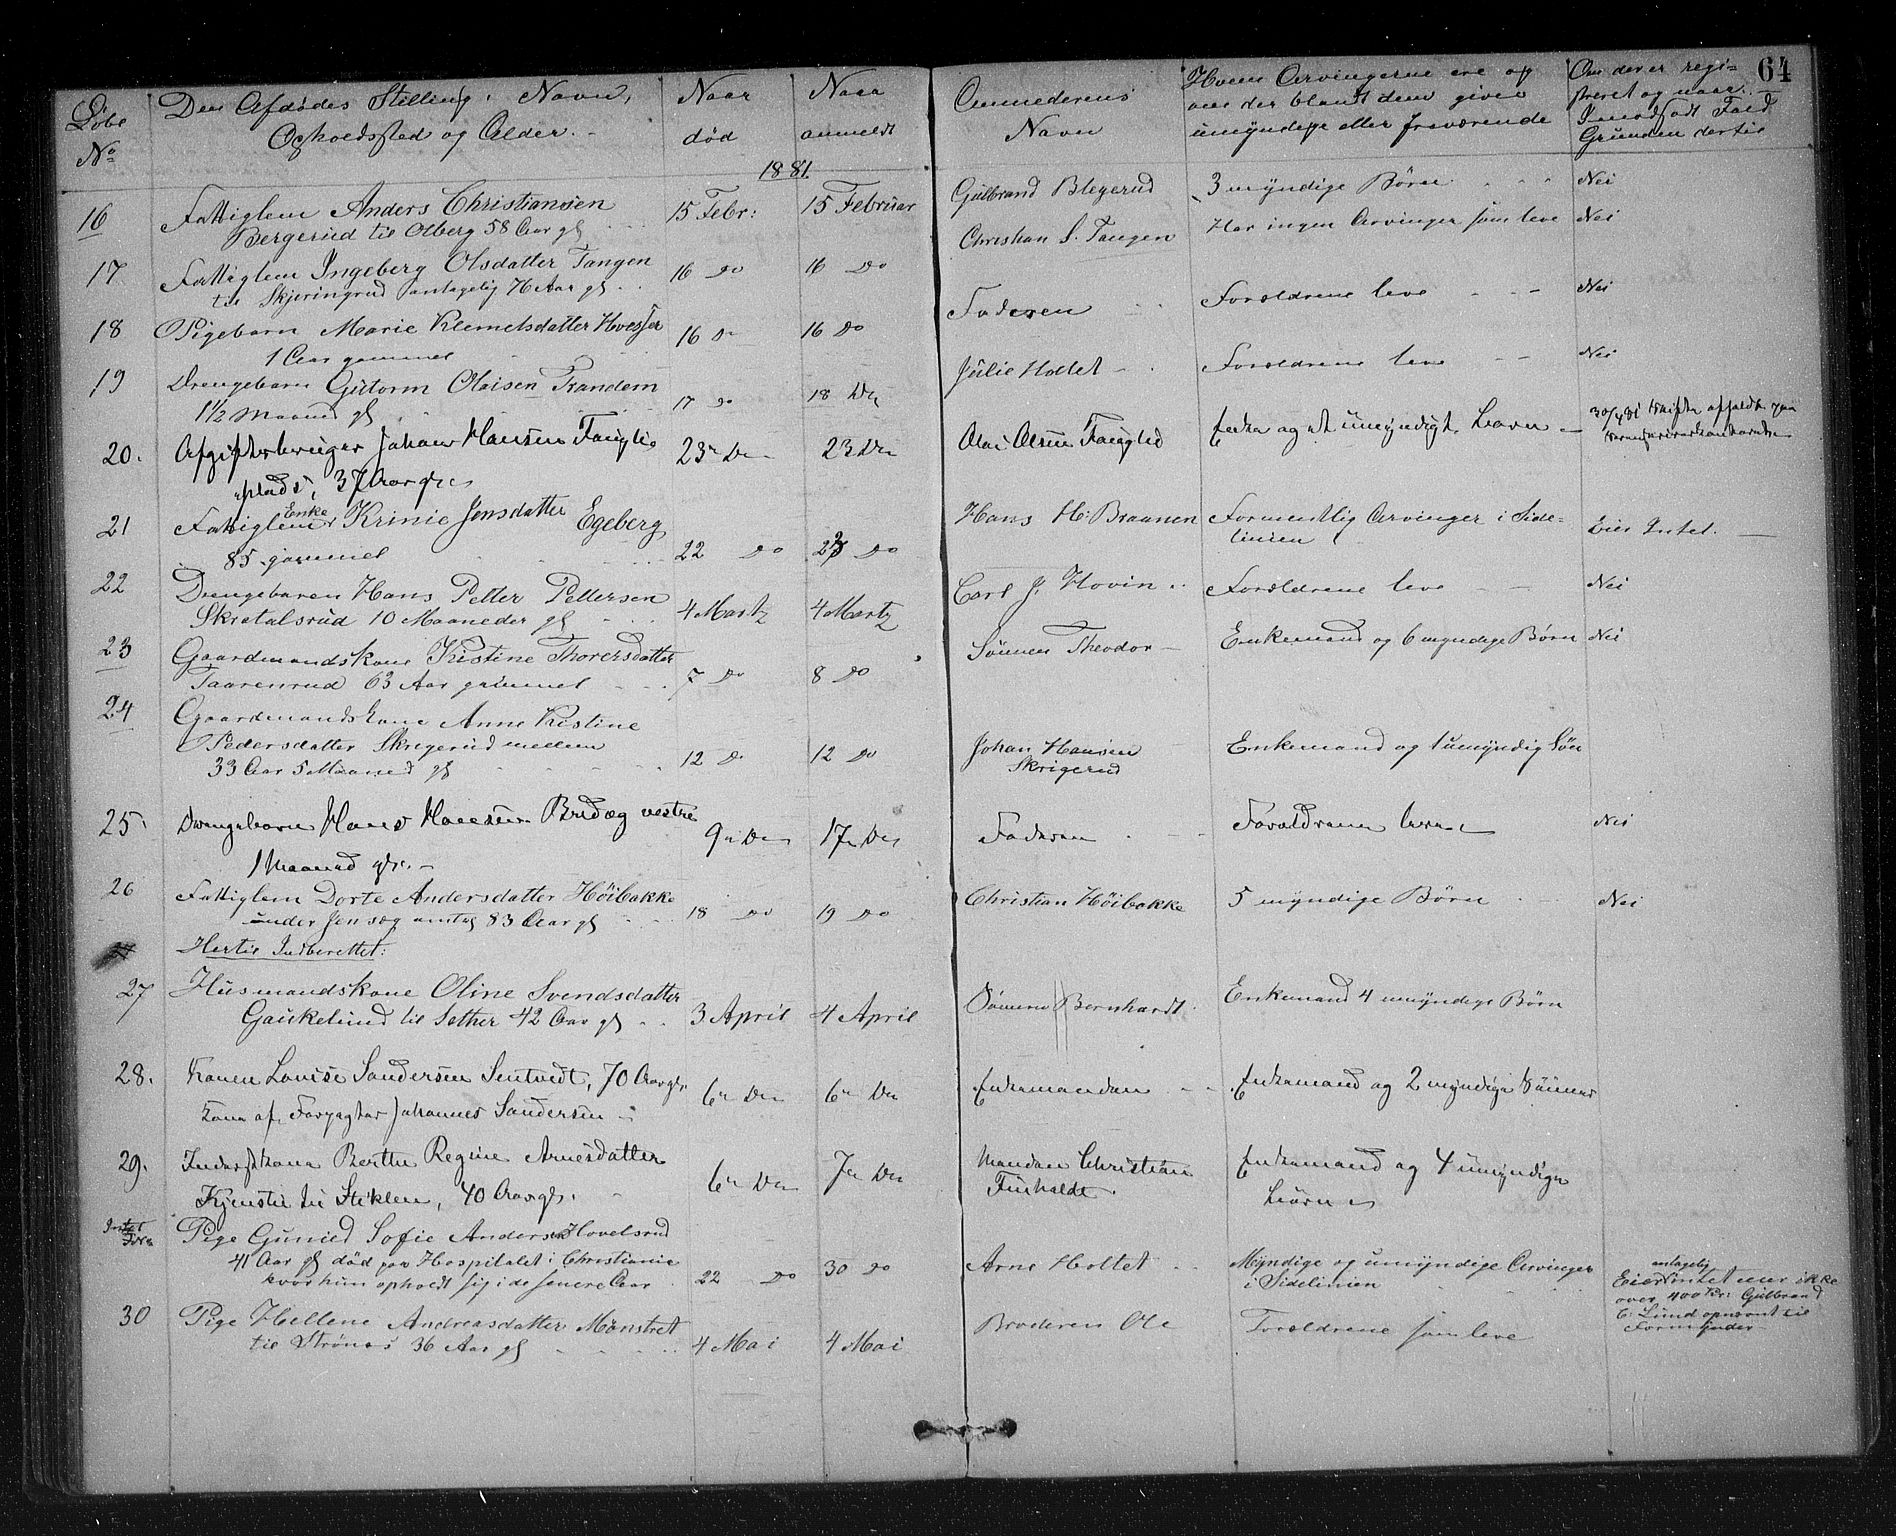 64
Løbe No
Den Afdødes Stilling, Navn, Opholdssted og Alder.
Naar død
Naar anmeldt
Anmelderens Navn
Hvem Arvingerne ere og om der blandt dem gives umyndige eller fraværende
Om der er registreret og naar. I modsat Fald Grunden dertil
1881.
16 Fattiglem Anders Christiansen 15 Febr: 15 Februar Gulbrand Blegerud 3 myndige Børn Nei
Bergerud til Olberg 58 Aar gl
17 Fattiglem Ingeberg Olsdatter Tangen 16 Do 16 Do Christian S. Tangen Har ingen Arvinger som leve Nei
til Skjeringrud antagelig 76 Aar gl
18 Pigebarn Marie Klemetsdatter 16 Do 16 Do Faderen Forældrene leve Nei
1 Aar gammel
19 Drengebarn Guttorm Olaisen Trandem 17 Do 18 Do Julie Holtet Forældrene leve Nei
1½ Maaned gl
20. Afgiftsbruger Johan Hansen 23 Do 23 Do Olai Olsen Enke og et umyndigt barn 30/4 81 Skifte
plads, 37 Aar gl.
21 Fattiglem Enke Krinie Jensdatter Egeberg 22 Do 23 Do Hans H: Braanen Formentlig Arvinger i Side-
85 gammel linien Eier Intet.
22 Drengebaren Hans Petter Pettersen 4 Martz 4 Martz Carl J. Hovin Forældrene leve Nei
Skretalsrud 10 Maaneder gl
23 Gaardmandskone Kristine Thorersdatter 7 Do 8 Do Sønnen Theodor Enkemand og 6 myndige Børn Nei
Taarenrud 63 Aar gammel
24 Gaardmandskone Anne Kristine
Pedersdatter Skrigerud mellem 12 Do 12 Do Johan Hansen Enkemand og 1 umyndig Søn
33 Aar 5 Maaned gl Skrigerud
25. Drengebarn Hans Hansen Bredeg vestre 9 Do 17 Do Faderen Forældrene leve Nei
1 Maaned gl.
26 Fattiglem Dorte Andersdatter Höibakke 18 Do 19 Do Christian Höibakke 5 myndige Børn Nei
under Jenseg 83 Aar gl
Hertil Indberettet:
27 Husmandskone Oline Svendsdatter 3 April 4 April Sønnen Bernhardt Enkemand 4 umyndige Børn
Gaukelund til Sether 42 Aar gl
28. Konen Lovise Sandersen Sentvedt, 70 Aar gl. 6 Do 6 Do Enkemanden Enkemand og 2 myndige Sønner
Kone af Forpagter Johannes Sandersen
29. Inderstkone Berthe Regine Arnesdatter 6 Do 7 Do Manden Christian Enkemand og 4 umyndige
Kjenstil til Stiklen, 40 Aar gl. Finholdt. børn
Intet Pige Gunild Sofie Andersen Hovelsrud
41 Aar gl død paa Hospitalet i Christiania 22 Do 30 Do Arne Holtet Myndige og umyndige Arvinger
hvor hun opholdt sig i de senere Aar i Sidelinien
antagelig Eier intet mer ikke over 400 Kr: Gulbrand C. Lund opnævnt til Formynder
30 Pige Hellene Andreasdatter Mønstret 4 Mai 4 Mai Broderen Ole Forældrene som leve
til Strönes 36 Aar gl